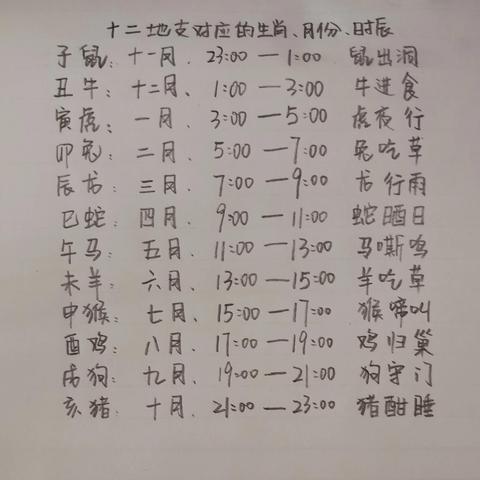 十二地支对应的生肖、月份、时辰
子鼠: 十一月. 23:00 — 1:00 鼠出洞
丑牛: 十二月. 1:00 — 3:00 牛进食
寅虎: 一月. 3:00 — 5:00 虎夜行
卯兔: 二月. 5:00 — 7:00 兔吃草
辰龙: 三月. 7:00 — 9:00 龙行雨
巳蛇: 四月. 9:00 — 11:00 蛇晒日
午马: 五月. 11:00 — 13:00 马嘶鸣
未羊: 六月. 13:00 — 15:00 羊吃草
申猴: 七月. 15:00 — 17:00 猴啼叫
酉鸡: 八月. 17:00 — 19:00 鸡归巢
戌狗: 九月. 19:00 — 21:00 狗守门
亥猪: 十月. 21:00 — 23:00 猪酣睡